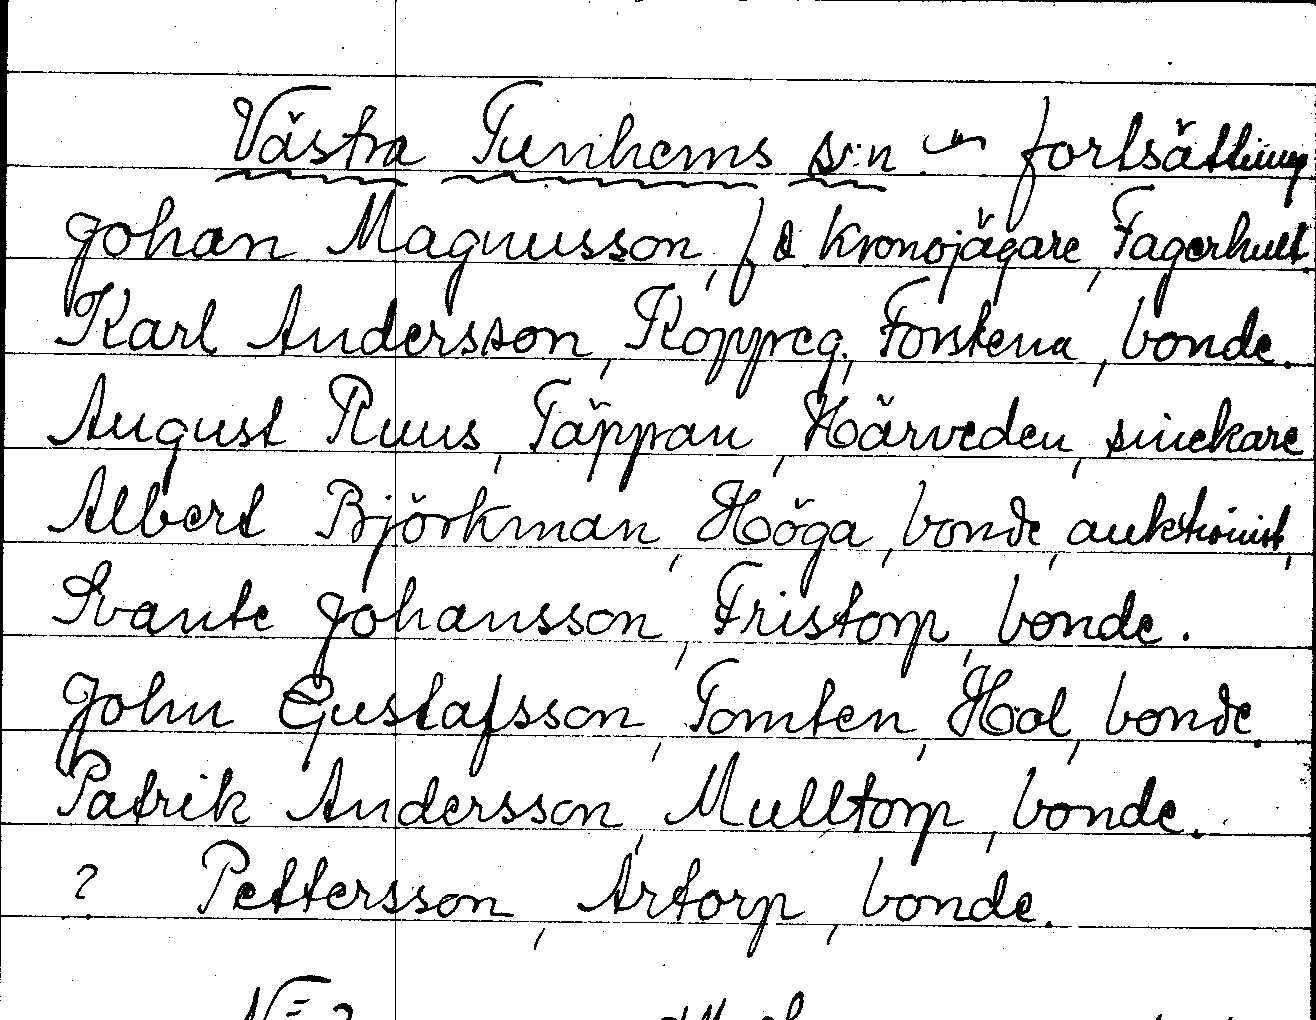 Västra Tunhems s:n – fortsättning
Johan Magnusson, f d kronojägare, Fagerhult.
Karl Andersson, Koppreg. Forstena, bonde.
August Ruus, Täppan, Härveden, snickare
Albert Björkman, Höga, bonde, auktionist,
Svante Johansson, Fristorp, bonde.
John Gustafsson, Tomten, Hol, bonde.
Patrik Andersson, Mulltorp, bonde.
? Pettersson, Artorp, bonde.